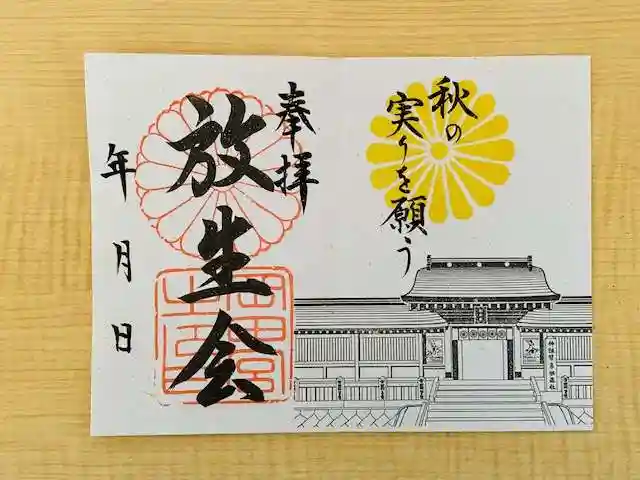 秋の
実りを願う
奉拝
放生会
年 月 日